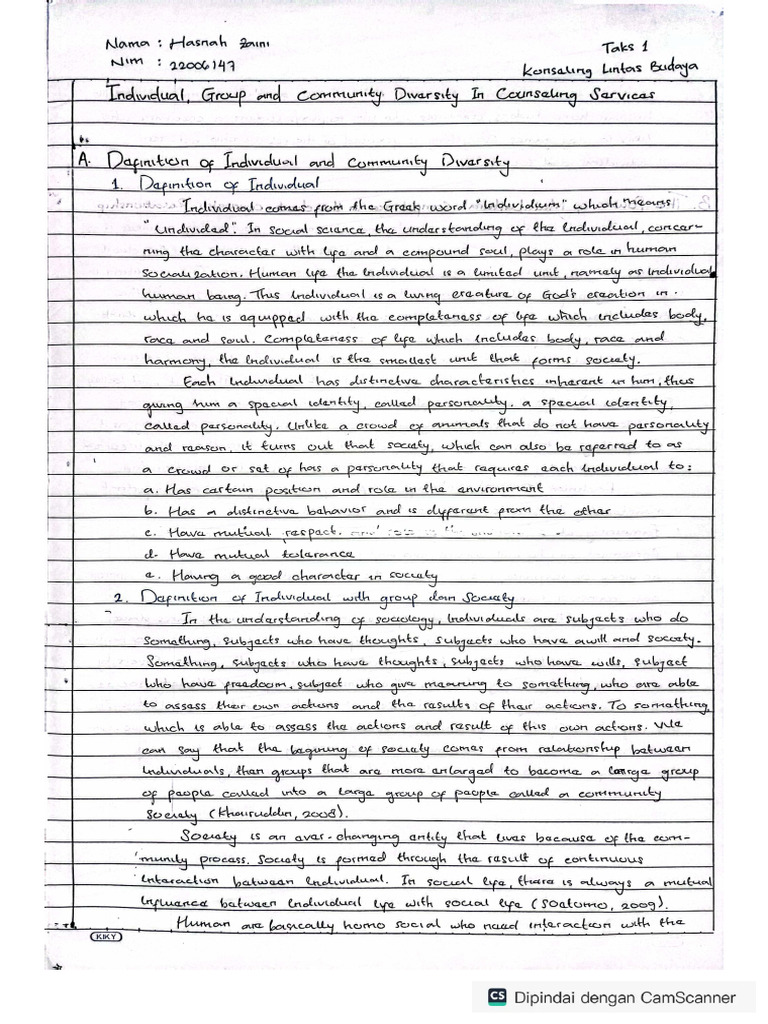 Nama : Hasnah Zaini
Taks 1
Nim : 22006147
Konseling Lintas Budaya
Individual, Group and Community Diversity In Counseling Services
A. Definition of Individual and Community Diversity
1. Definition of Individual
Individual comes from the Greek word "Individium" which means
"Undivided". In social science, the understanding of the Individual, concer-
ning the character with life and a compound soul, plays a role in human
Socialization. Human life the Individual is a limited unit, namely as individual
human being. This Individual is a living creature of God's creation in.
which he is equipped with the completeness of life which includes body,
race and soul. Completeness of life which includes body, race and
harmony, the Individual is the smallest unit that forms society.
Each Individual has distinctive characteristics inherent in him, thus
giving him a special identity, called personality. a special identity,
called personality. Unlike a crowd of animals that do not have personality
and reason, it turns out that society, which can also be referred to as
a crowd or set of has a personality that requires each Individual to:
a. Has certain position and role in the environment
b. Has a distinctive behavior and is different from the other
c. Have mutual respect.
d. Have mutual tolerance
e. Having a good character in society
2. Definition of Individual with group dan Society
In the understanding of sociology, Individuals are subjects who do
something, subjects who have thoughts, subjects who have a will and society.
Something, subjects who have thoughts, subjects who have wills, subject
who have freedoom, subject who give meaning to something, who are able
to assess their own actions and the results of their actions. To something,
which is able to assess the actions and result of this own actions. We
can say that the begining of society comes from relationship between
Individuals, then groups that are more enlarged to become a large group
of people called into a large group of people called a community
Society (Khairuddin, 2008).
Society is an ever-changing entity that lives because of the com-
munity process. Society is formed through the result of continuous
interaction between Individual. In social life, there is always a mutual
Influence between Individual life with social life (Soetomo, 2009).
Human are basically homo social who need interaction with the
KIKY
CS Dipindai dengan CamScanner